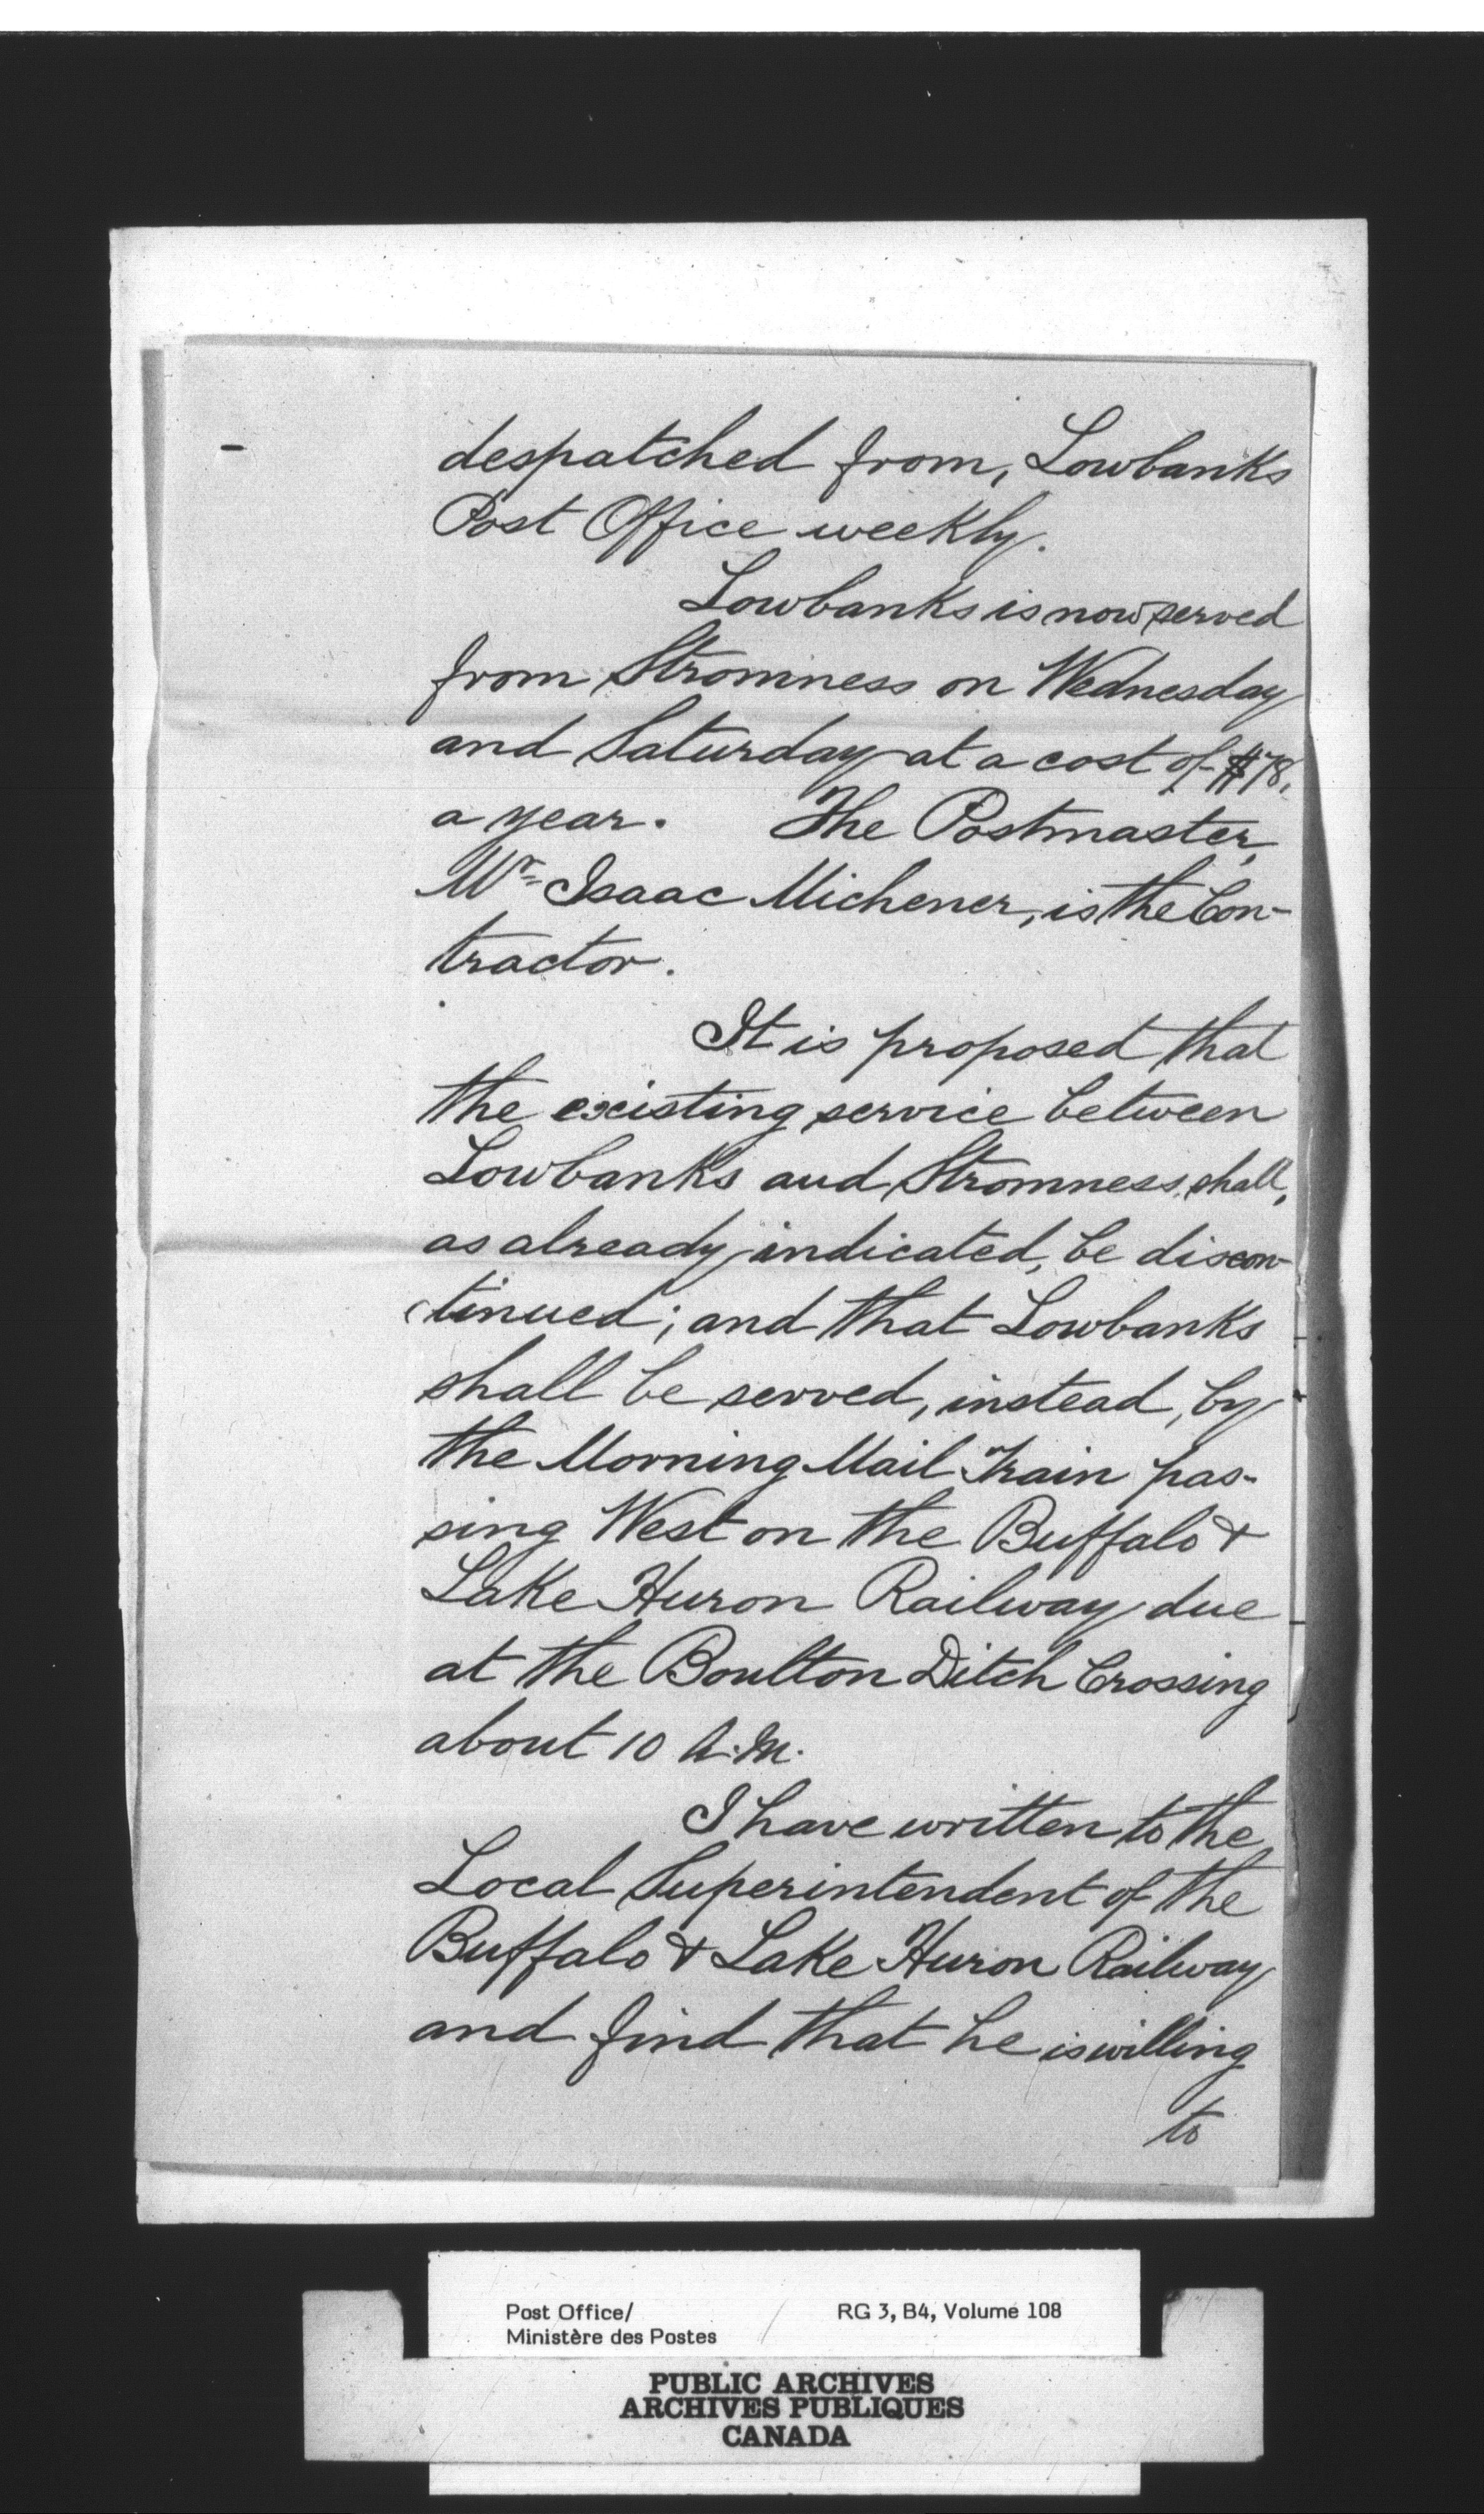 despatched from, Lowbanks
Post Office weekly.
Lowbanks is now served
from Stromness on Wednesday
and Saturday at a cost of $78.
a year. The Postmaster,
Mr. Isaac Michener, is the Con-
tractor.
It is proposed that
the existing service between
Lowbanks and Stromness, shall,
as already indicated, be discon-
tinued; and that Lowbanks
shall be served, instead, by
the Morning Mail Train pas-
sing West on the Buffalo &
Lake Huron Railway due
at the Boulton Ditch Crossing
about 10 A.M.
I have written to the
Local Superintendent of the
Buffalo & Lake Huron Railway
and find that he is willing
to
Post Office/ RG 3, B4, Volume 108
Ministère des Postes
PUBLIC ARCHIVES
ARCHIVES PUBLIQUES
CANADA